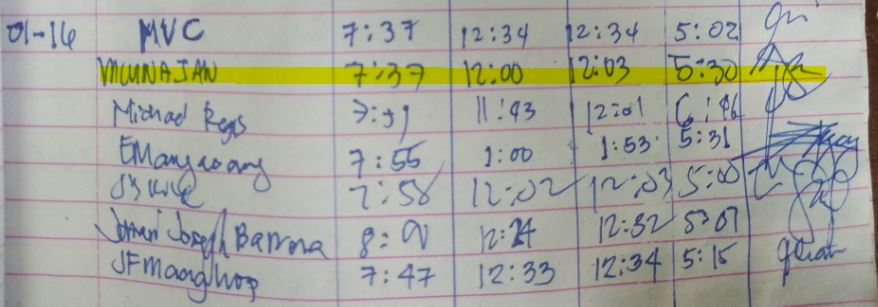 01-16 MVC 7:37 12:34 12:34 5:02
VMUNAJAN 7:37 12:00 12:03 5:30
Michael Regis 7:51 11:43 12:01 6:46
EMangaoang 7:55 1:00 1:53 5:31
7:58 12:02 12:03 5:00
Joseph Barrona 8: 12:24 12:32 5:07
7:47 12:33 12:34 5:15